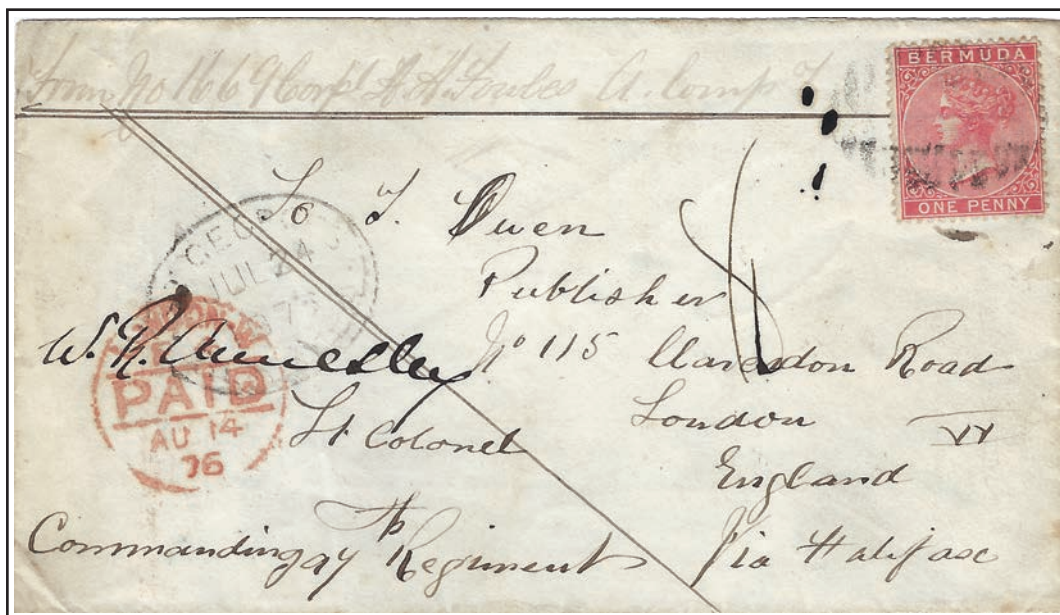 From No 1606 Corpl A. A. Fowles A. Comp
BERMUDA
ONE PENNY
To T. Owen
Publisher
No 115 Claredon Road
London W
England
Via Halifax
JUL 24
LONDON W
PAID
AU 14
76
W. R. Annesley
Lt Colonel
Commanding 97th Regiment